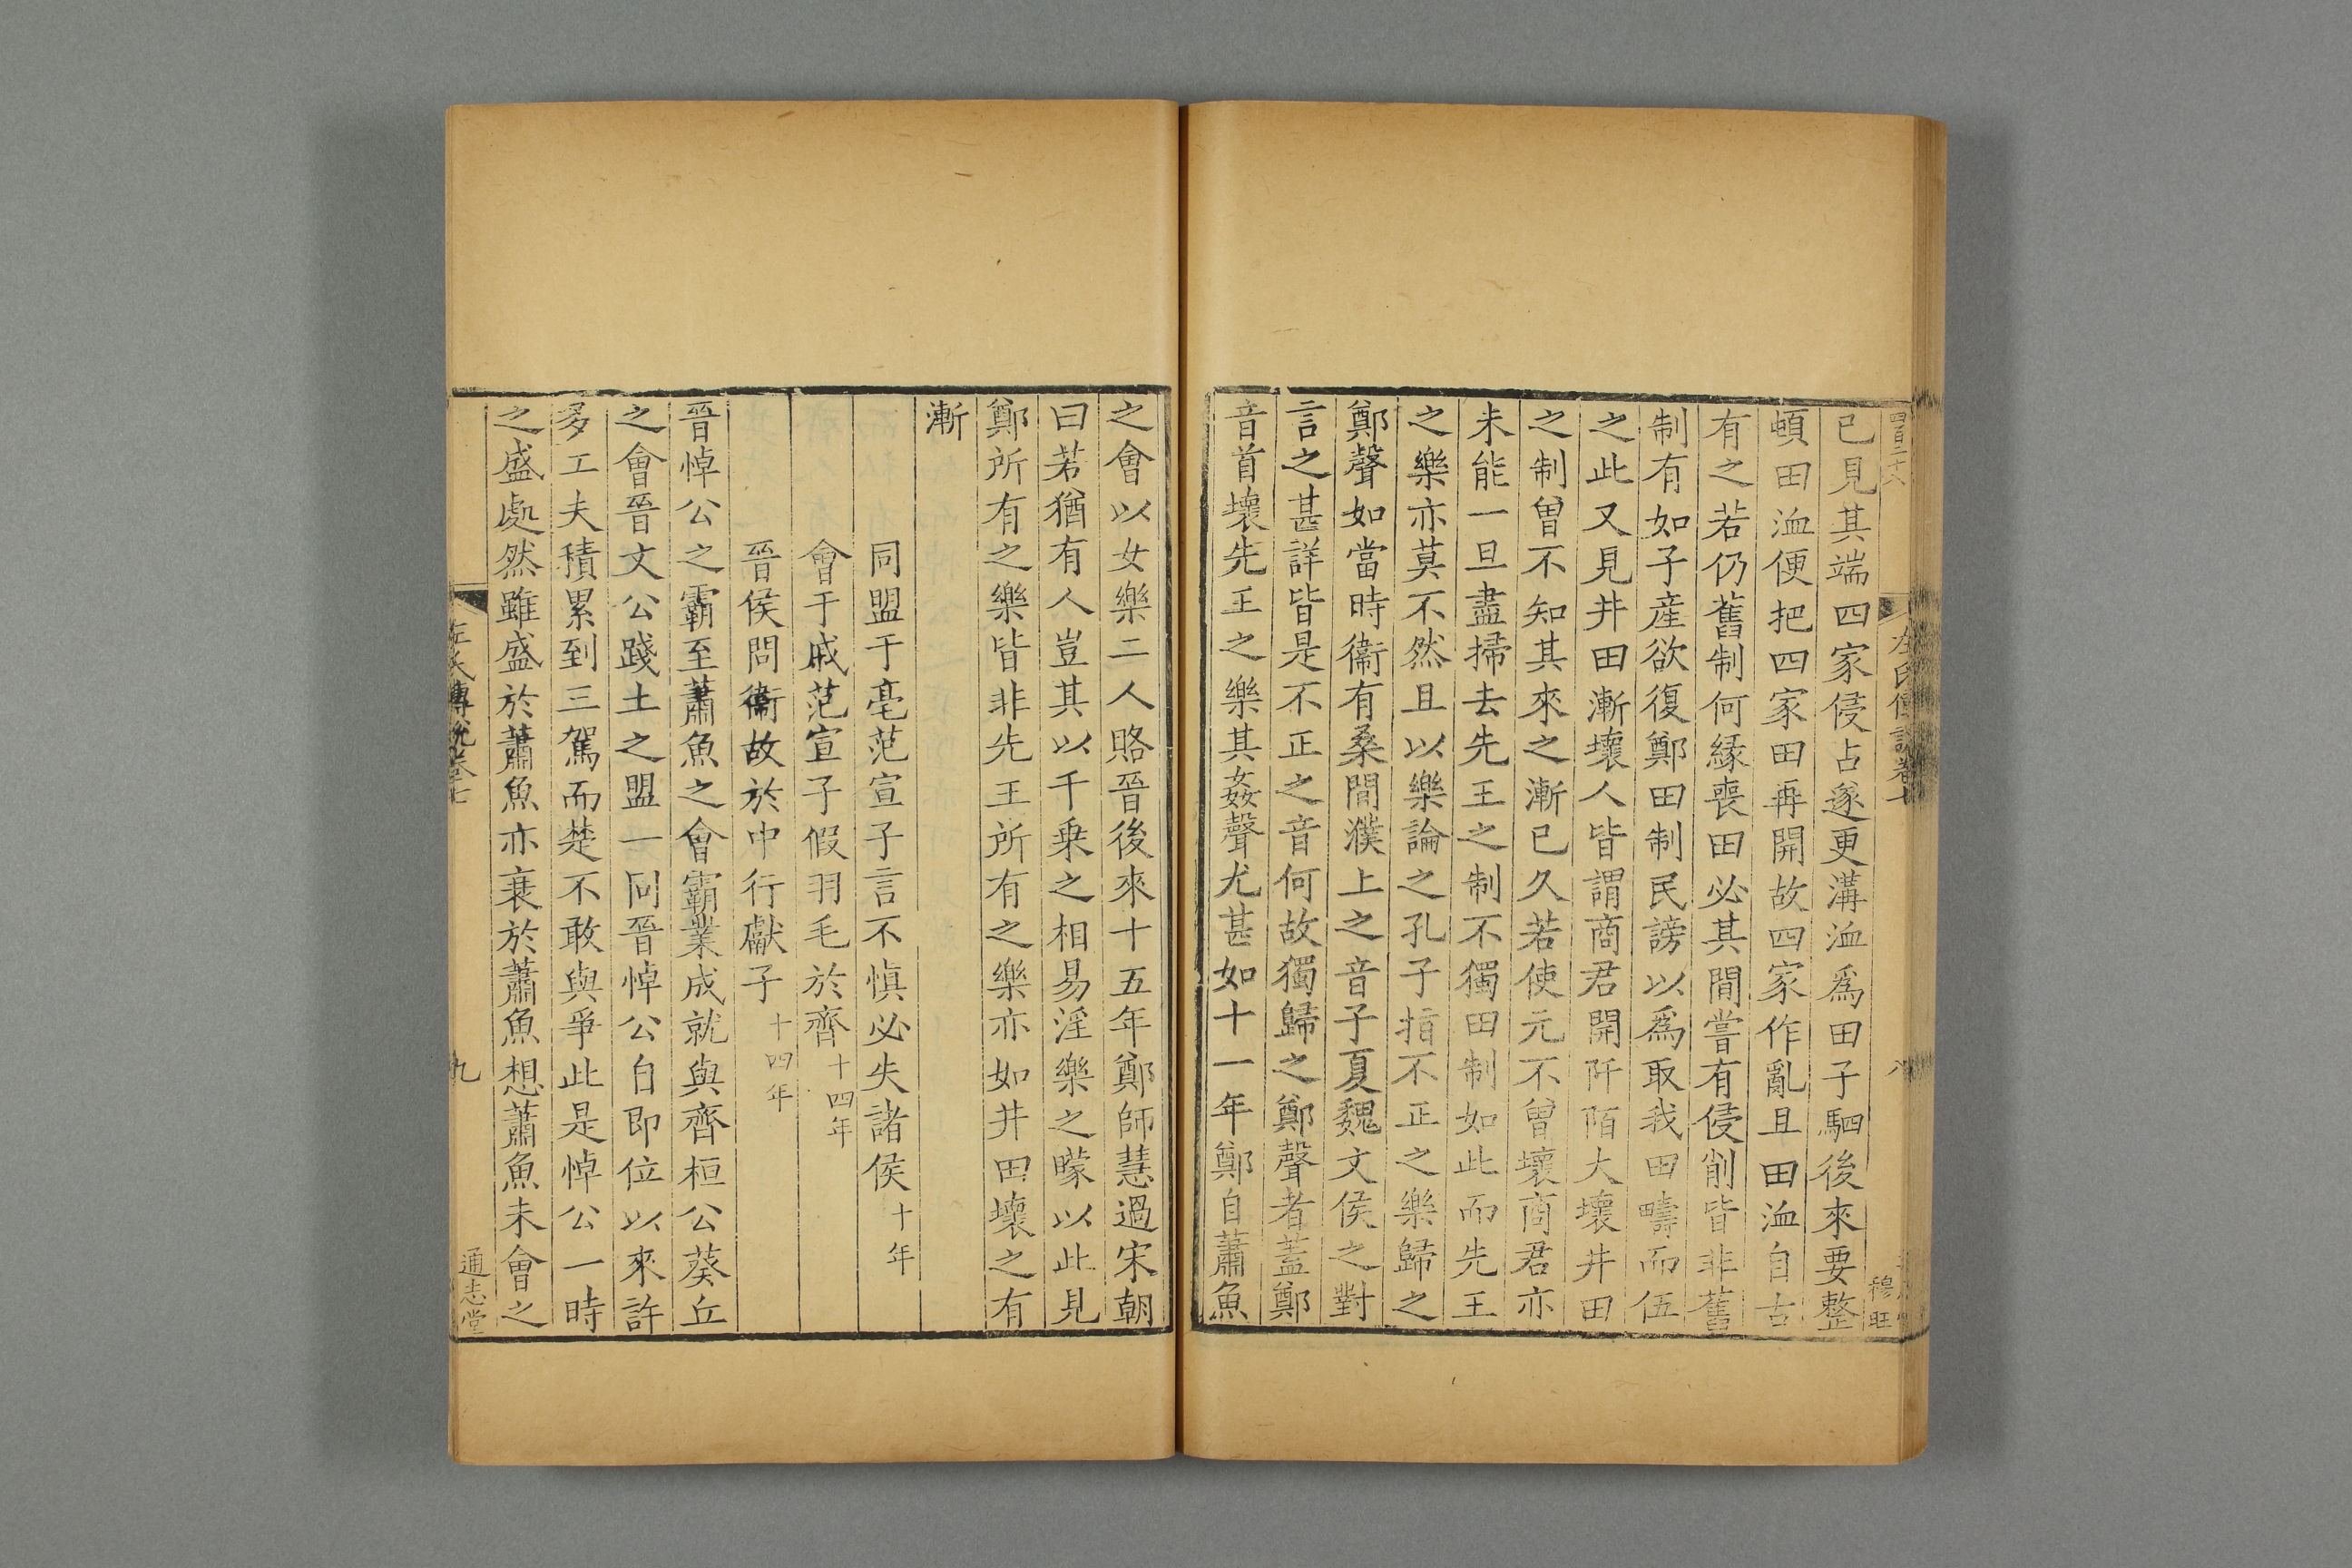 四百二十八
左氏傳說卷七
八
穆旺
已見其端四家侵占遂更溝洫爲田子駟後來要整
頓田洫便把四家田再開故四家作亂且田洫自古
有之若仍舊制何緣喪田必其間嘗有侵削皆非舊
制有如子產欲復鄭田制民謗以爲取我田疇而伍
之此又見井田漸壞人皆謂商君開阡陌大壞井田
之制曾不知其來之漸已久若使元不曾壞商君亦
未能一旦盡掃去先王之制不獨田制如此而先王
之樂亦莫不然且以樂論之孔子指不正之樂歸之
鄭聲如當時衞有桑間濮上之音子夏魏文侯之對
言之甚詳皆是不正之音何故獨歸之鄭聲者蓋鄭
音首壞先王之樂其姦聲尤甚如十一年鄭自蕭魚
之會以女樂二人賂晉後來十五年鄭師慧過宋朝
曰若猶有人豈其以千乗之相易淫樂之矇以此見
鄭所有之樂皆非先王所有之樂亦如井田壞之有
漸
同盟于亳范宣子言不慎必失諸侯十年
會于戚范宣子假羽毛於齊十四年
晉侯問衞故於中行獻子十四年
晉悼公之霸至蕭魚之會霸業成就與齊桓公葵丘
之會晉文公踐土之盟一同晉悼公自即位以來許
多工夫積累到三駕而楚不敢與爭此是悼公一時
之盛處然雖盛於蕭魚亦衰於蕭魚想蕭魚未會之
左氏傳說卷七
九
通志堂